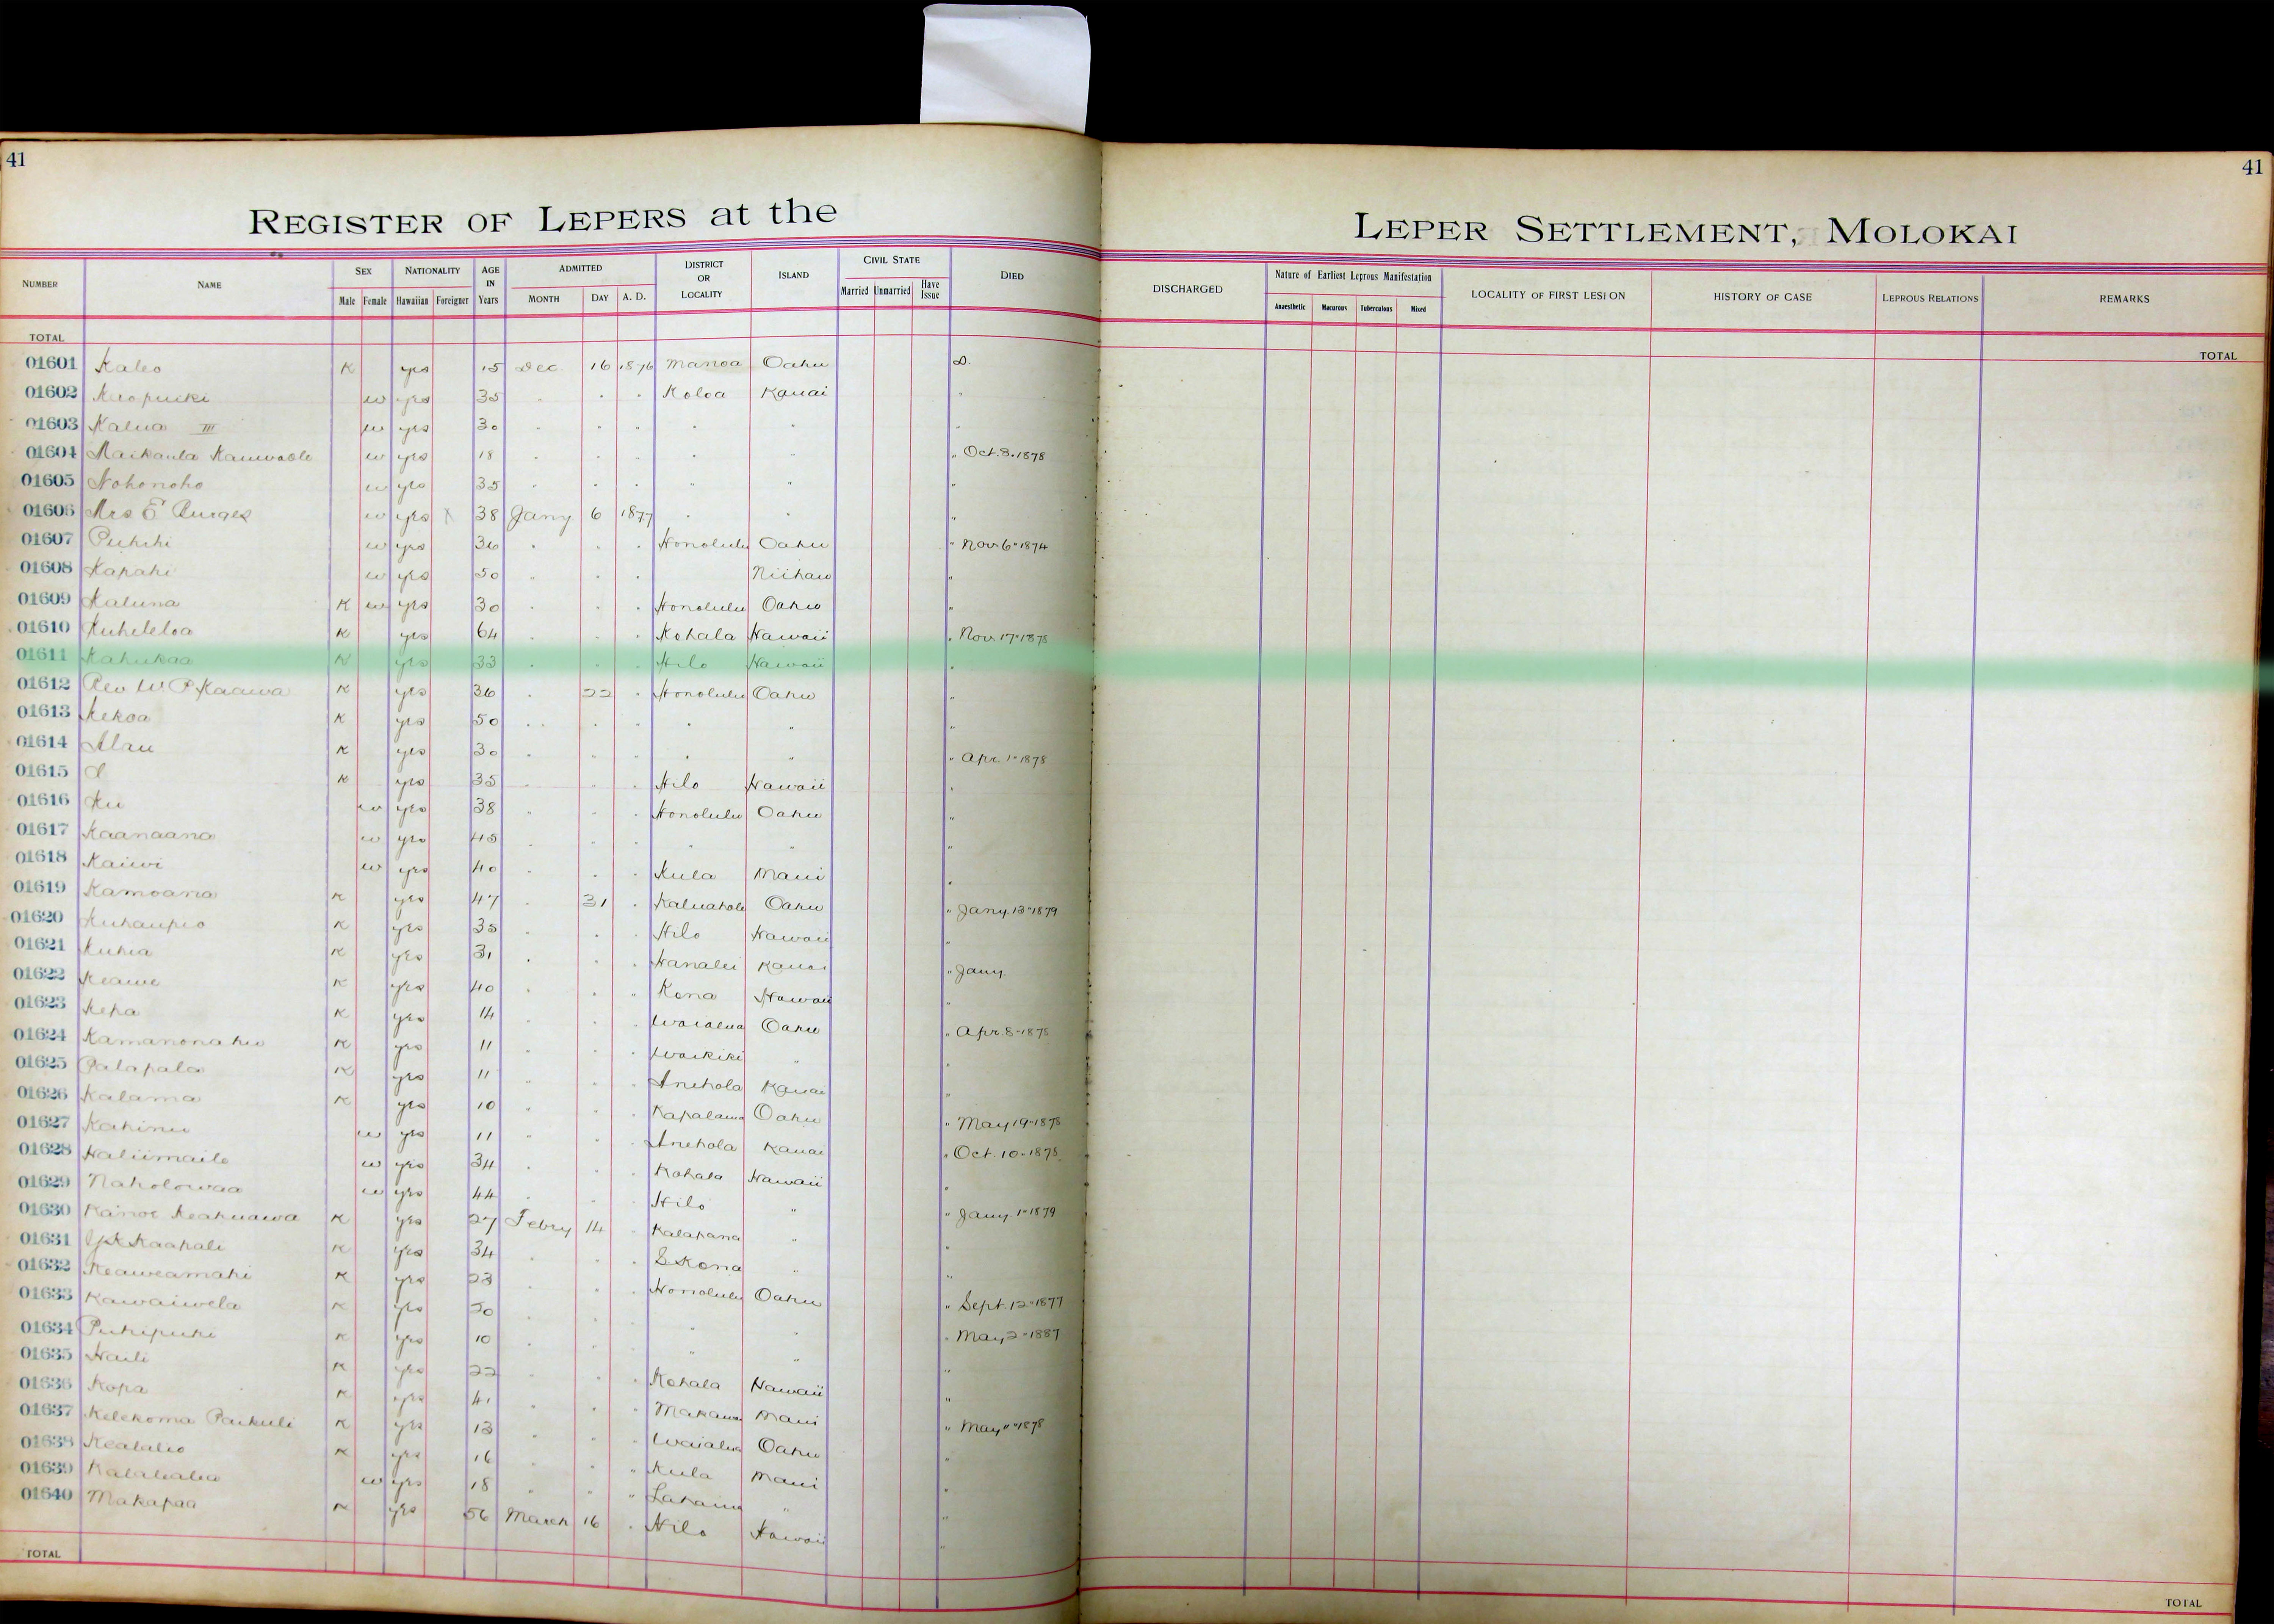 41
41
REGISTER OF LEPERS at the
LEPER SETTLEMENT, MOLOKAI
NUMBER NAME SEX Male Female NATIONALITY Hawaiian Foreigner AGE IN Years ADMITTED MONTH DAY A. D. DISTRICT OR LOCALITY ISLAND CIVIL STATE Married Unmarried Have Issue DIED
DISCHARGED Nature of Earliest Leprous Manifestation Anaesthetic Macurous Tuberculous Mixed LOCALITY OF FIRST LESION HISTORY OF CASE LEPROUS RELATIONS REMARKS
TOTAL
TOTAL
01601 Kaleo K yes 15 Dec. 16 1876 Manoa Oahu D.
01602 w yes 35 " " " Koloa Kauai "
01603 Kalua III w yes 30 " " " " " "
01604 Maikaula w yes 18 " " " " " " Oct. 3. 1878
01605 Nohonoho w yes 35 " " " " " "
01606 Mrs E Burges w yes X 38 Jany 6 1877 " " "
01607 Puhihi w yes 36 " " " Honolulu Oahu " Nov 6" 1874
01608 Kapahi w yes 50 " " " Niihau "
01609 Kaluna K w yes 30 " " " Honolulu Oahu "
01610 Kuheleloa K yes 64 " " " Kohala Hawaii " Nov. 17" 1878
01611 Kahukaa K yes 33 " " " Hilo Hawaii "
01612 Rev W. P Kaawa K yes 36 " 22 " Honolulu Oahu "
01613 Kekoa K yes 50 " " " " " "
01614 Alau K yes 30 " " " " " " Apr. 1" 1878
01615 K yes 35 " " " Hilo Hawaii "
01616 Ku w yes 38 " " " Honolulu Oahu "
01617 Kaanaana w yes 45 " " " " " "
01618 Kaiwi w yes 40 " " " Kula Maui "
01619 Kamoana K yes 47 " 31 " Kaluahole Oahu " Jany. 13" 1879
01620 Kuhaupio K yes 35 " " " Hilo Hawaii "
01621 Kuhia K yes 31 " " " Hanalei Kauai " Jany.
01622 Keawe K yes 40 " " " Kona Hawaii "
01623 Kepa K yes 14 " " " Waialua Oahu " Apr. 8" 1878
01624 Kamanonahu K yes 11 " " " Waikiki " "
01625 Palapala K yes 11 " " " Anehola Kauai "
01626 Kalama K yes 10 " " " Kapalama Oahu " May 19" 1878
01627 Kahinu w yes 11 " " " Anehola Kauai " Oct. 10" 1878
01628 Haliimaile w yes 34 " " " Kohala Hawaii "
01629 Naholowaa w yes 44 " " " Hilo " " Jany. 1" 1879
01630 Kainoe Keakuawa K yes 27 Febry 14 " Kalapana " "
01631 Kaapali K yes 34 " " " S. Kona " "
01632 Keaweamahi K yes 23 " " " Honolulu Oahu " Sept. 12" 1877
01633 Kawaiwela K yes " " " " " " May 2" 1887
01634 Puhipuhi K yes 10 " " " " " "
01635 Haili K yes 22 " " " Kohala Hawaii "
01636 Kopa K yes 41 " " " Makawao Maui " May 11" 1878
01637 Kelekoma Paikuli K yes 13 " " " Waialua Oahu "
01638 Kealalio K yes 16 " " " Kula Maui "
01639 w yes 18 " " " Lahaina " "
01640 Makapaa K yes 56 March 16 " Hilo Hawaii "
TOTAL
TOTAL